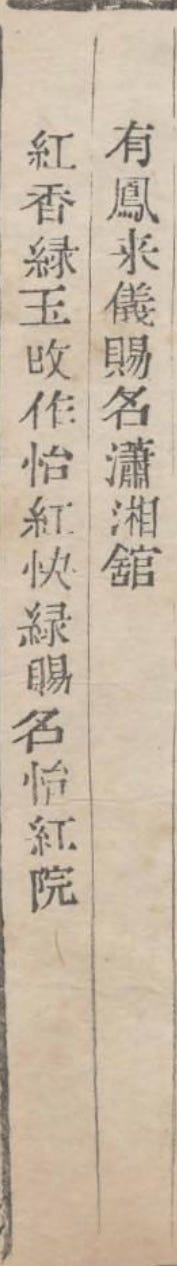 有鳳来儀賜名瀟湘舘
紅香緑玉改作怡紅快緑賜名怡紅院